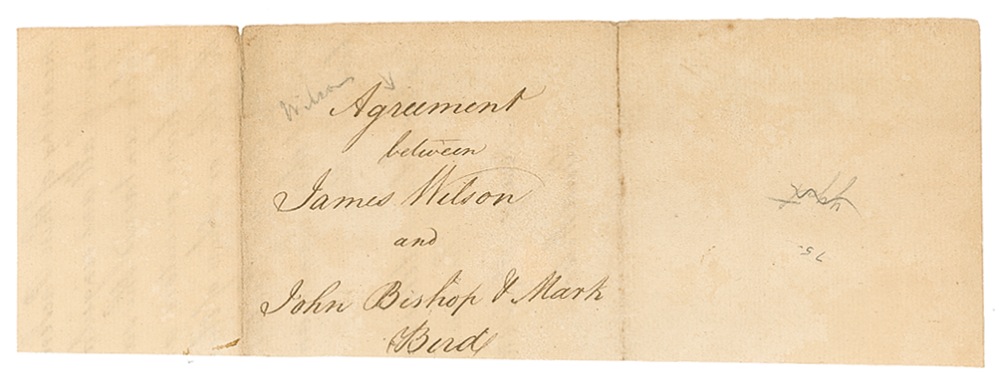 Wilson
Agreement
between
James Wilson
and
John Bishop & Mark
Bird
75-